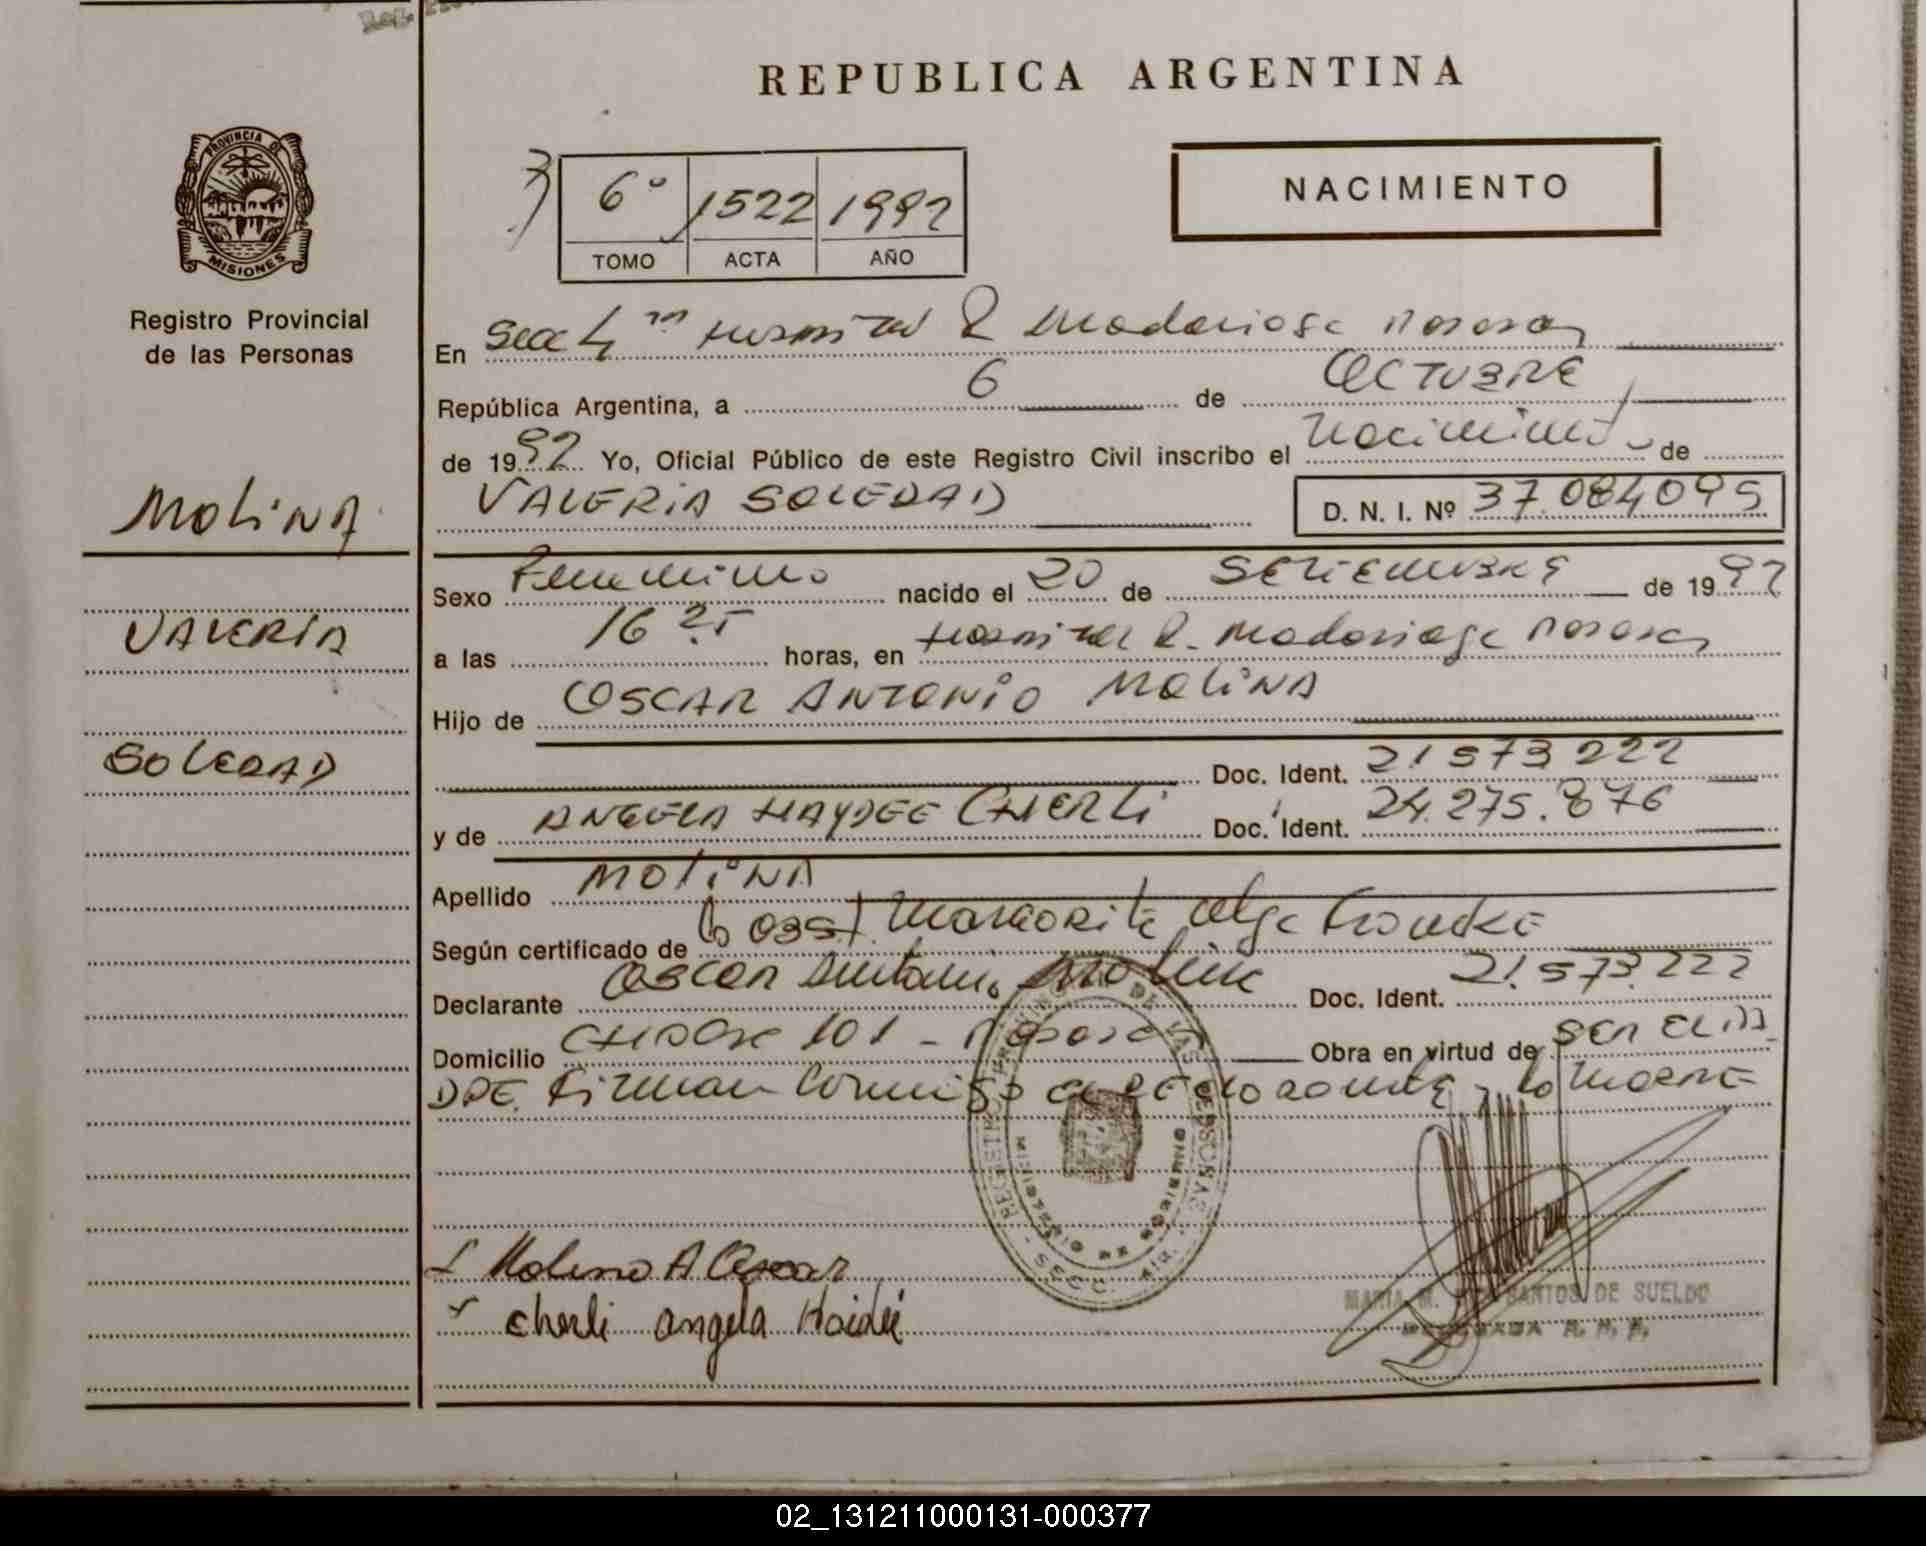 REPUBLICA ARGENTINA
PROVINCIA DE
MISIONES
Registro Provincial
de las Personas
6° 1522 1992
TOMO ACTA AÑO
NACIMIENTO
En Secc 4ta Hospital R Madariaga Posadas
República Argentina, a 6 de OCTUBRE
de 1992 Yo, Oficial Público de este Registro Civil inscribo el Nacimiento de
VALERIA SOLEDAD D. N. I. Nº 37.084095
MOLINA
VALERIA
SOLEDAD
Sexo Femenino nacido el 20 de SETIEMBRE de 1992
a las 16 25 horas, en Hospital R. Madariaga Posadas
Hijo de OSCAR ANTONIO MOLINA
Doc. Ident. 21573222
y de ANGELA HAYDEE CHERLI Doc. Ident. 24.275.876
Apellido MOLINA
Según certificado de la Obst. Margarita Olga
Declarante Oscar Antonio Molina Doc. Ident. 21.573.222
Domicilio 101 - Posadas Obra en virtud de ser el PA
DRE. Firman conmigo el declarante y la MADRE
Molina A Oscar
Cherli angela Haidée
MARIA M. SANTOS DE SUELDO
02_131211000131-000377